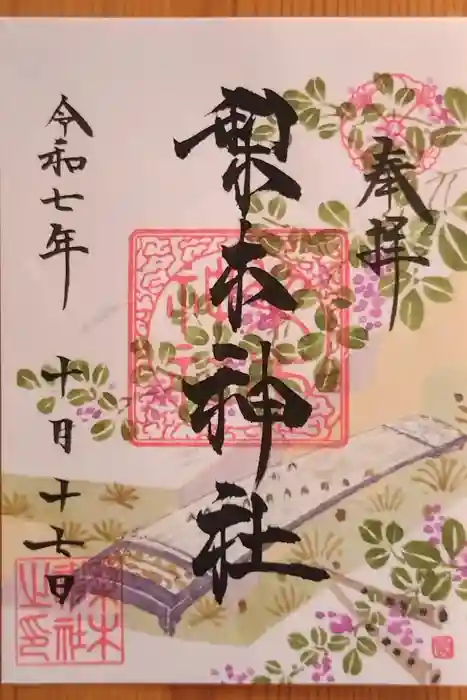 奉拝
梨木神社
令和七年 十月十七日